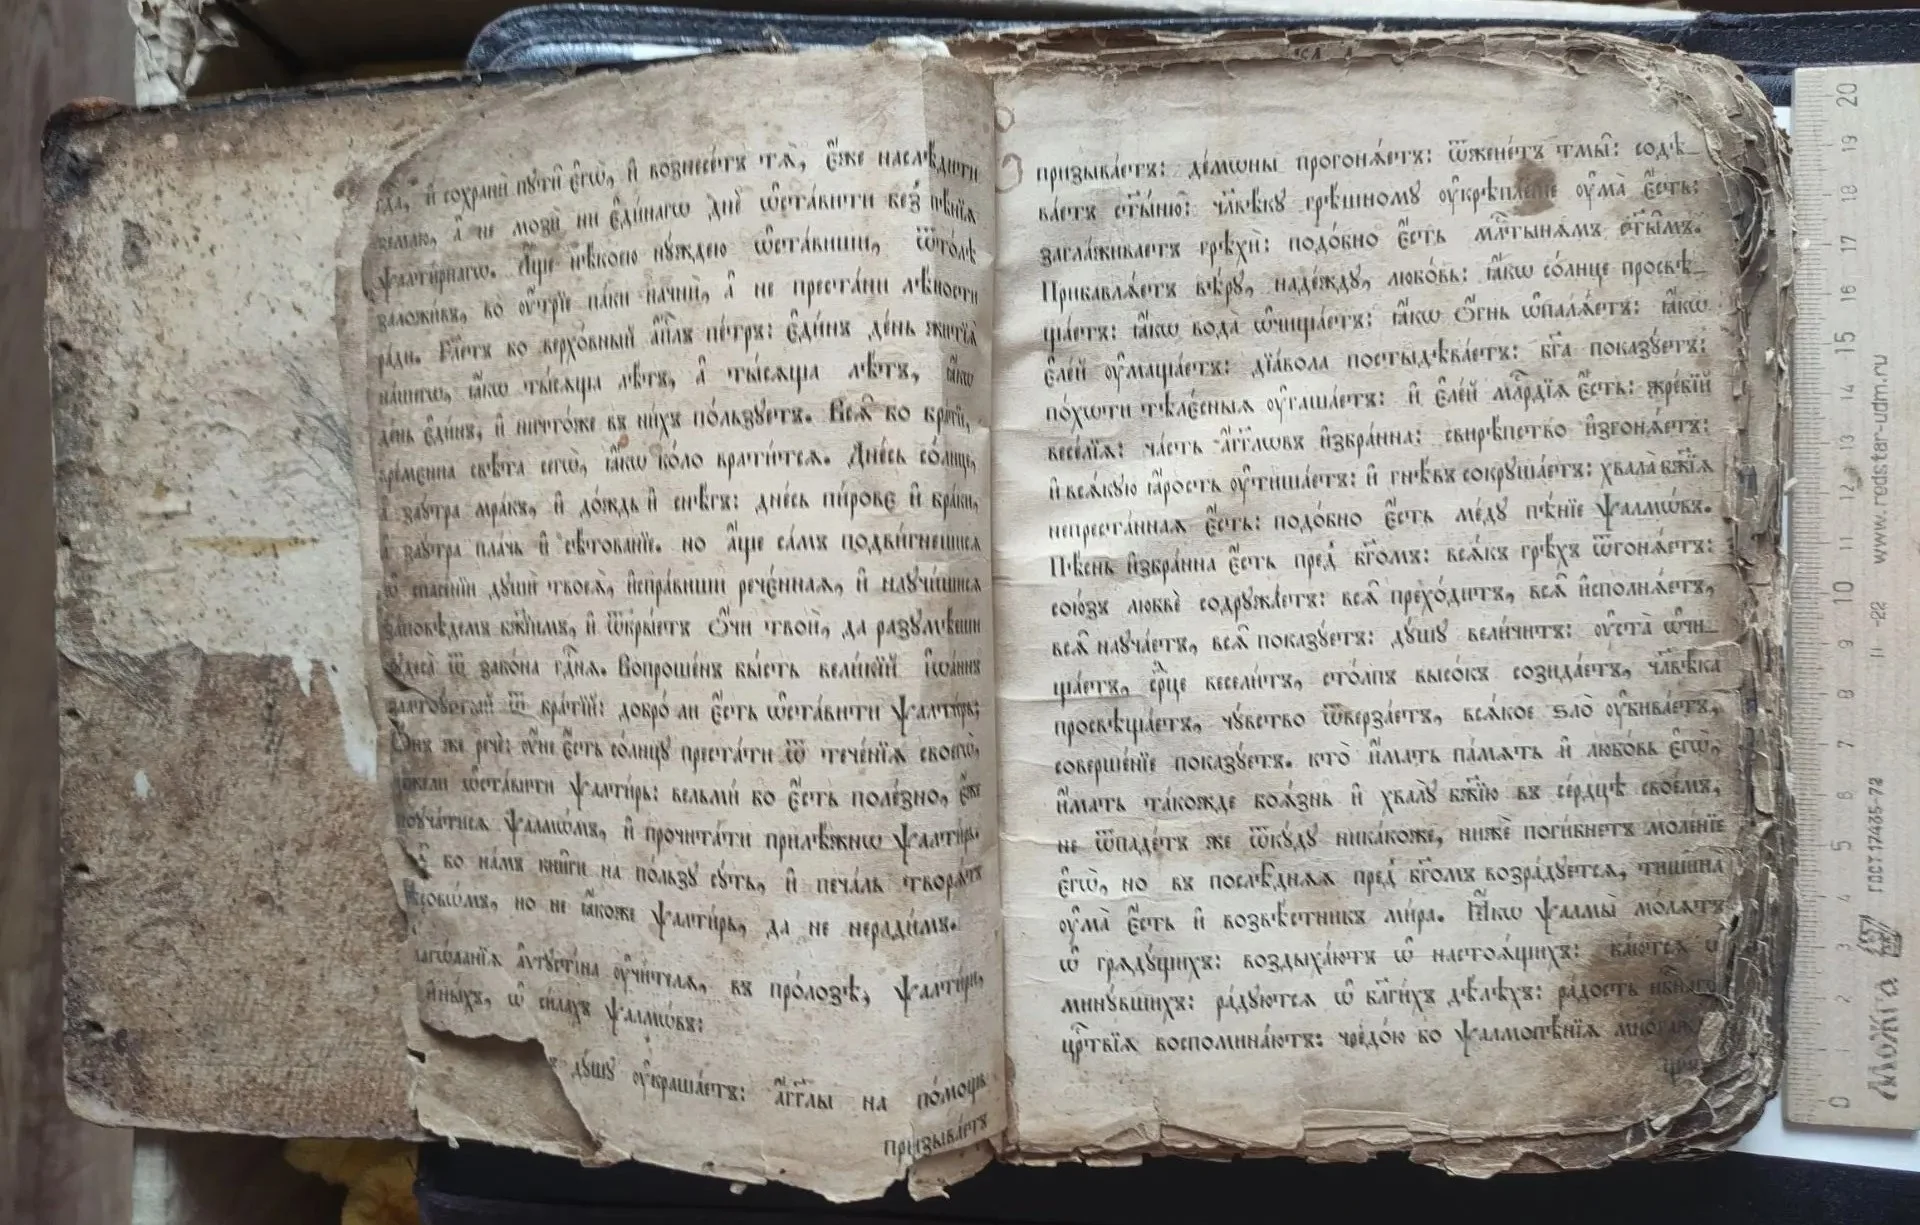 гдⷭ҇а, и҆ сохранѝ пꙋти̑ є҆гѡ̀, и҆ вознесе́тъ тѧ̀, є҆́же наслѣ́дити
зе́млю, а҆ не мозѝ ни є҆ди́нагѡ днѐ ѡ҆ста́вити без̾ пѣ́нїѧ
ѱалти́рнагѡ. А҆́ще нѣ́коею нꙋ́ждею ѡ҆ста́виши, ѿто́лѣ
заложи́въ, во ᲂу҆́трїе па́ки начнѝ, а҆ не преста́ни лѣ́ности
ра́ди. Гл҃етъ бо верхо́вный а҆пⷭ҇лъ пе́тръ: є҆ди́нъ де́нь житїѧ̀
на́шегѡ, ꙗ҆́кѡ ты́сѧща лѣ́тъ, а҆ ты́сѧща лѣ́тъ, ꙗ҆́кѡ
де́нь є҆ди́нъ, и҆ ничто́же въ ни́хъ по́льзꙋетъ. Всѧ̑ бо бра́тїе,
вре́менна свѣ́та сегѡ̀, ꙗ҆́кѡ ко́ло врати́тсѧ. Дне́сь со́лнце,
а҆ заꙋ́тра мра́къ, и҆ до́ждь и҆ снѣ́гъ: дне́сь пи́рове и҆ бра́ки,
а҆ заꙋ́тра пла́чь и҆ сѣ́тованїе. но а҆́ще са́мъ подви́гнешисѧ
ѡ҆ спасе́нїи дꙋшѝ твоеѧ̀, и҆спра́виши рече́ннаѧ, и҆ наꙋчи́шисѧ
за́повѣдемъ бж҃їимъ, и҆ ѿкры́етъ ѻ҆́чи твоѝ, да разꙋмѣ́еши
чꙋдеса̀ ѿ зако́на гдⷭ҇нѧ. Вопроше́нъ бы́сть вели́кїй і҆ѡа́ннъ
златоꙋ́стый ѿ бра́тїй: добро́ ли є҆́сть ѡ҆ста́вити ѱалти́рь;
Ѻ҆́нъ же речѐ: ᲂу҆́не є҆́сть со́лнцꙋ преста́ти ѿ тече́нїѧ своегѡ̀,
не́жели ѡ҆ста́вити ѱалти́рь: вельмѝ бо є҆́сть поле́зно, є҆́же
поꙋча́тисѧ ѱалмѡ́мъ, и҆ прочита́ти прилѣ́жнѡ ѱалти́рь.
бо на́мъ кни́ги на по́льзꙋ сꙋ́ть, и҆ печа́ль творѧ́тъ
бѣсовѡ́мъ, но не ꙗ҆́коже ѱалти́рь, да не неради́мъ.
а҆́ѵгꙋстїна ᲂу҆чи́телѧ, въ про́лозѣ, ѱалти́ри,
и҆ны́хъ, ѡ҆ си́лахъ ѱалмѡ́въ:
дꙋ́шꙋ ᲂу҆краша́етъ: а҆́гг҃лы на по́мощь
призыва́етъ
призыва́етъ: де́мѡны прогонѧ́етъ: ѿжене́тъ тмы̀: содѣ-
ва́етъ ст҃ы́ню: чл҃вѣ́кꙋ грѣ́шномꙋ ᲂу҆крѣпле́нїе ᲂу҆ма̀ є҆́сть:
загла́живаетъ грѣхѝ: подо́бно є҆́сть млⷭ҇тынѧмъ ст҃ы́мъ.
Прибавлѧ́етъ вѣ́рꙋ, наде́ждꙋ, любо́вь: ꙗ҆́кѡ со́лнце просвѣ-
ща́етъ: ꙗ҆́кѡ вода̀ ѡ҆чища́етъ: ꙗ҆́кѡ ѻ҆́гнь ѡ҆палѧ́етъ: ꙗ҆́кѡ
є҆ле́й ᲂу҆маща́етъ: дїа́вола постыдѣва́етъ: бг҃а показꙋ́етъ:
по́хѡти тѣле́сныѧ ᲂу҆гаша́етъ: и҆ є҆ле́й млⷭ҇рдїѧ є҆́сть: жре́бїй
весе́лїѧ: ча́сть а҆́гг҃лѡвъ и҆збра́нна: свирѣ́пство и҆згонѧ́етъ:
и҆ всѧ́кꙋю ꙗ҆́рость ᲂу҆тиша́етъ: и҆ гнѣ́въ сокрꙋша́етъ: хвала̀ бж҃їѧ
непреста́ннаѧ є҆́сть: подо́бно є҆́сть ме́дꙋ пѣ́нїе ѱалмѡ́въ.
Пѣ́снь и҆збра́нна є҆́сть пред̾ бг҃омъ: всѧ́къ грѣ́хъ ѿгонѧ́етъ:
сою́зъ любвѐ содрꙋжа́етъ: всѧ̑ прехо́дитъ, всѧ̑ и҆сполнѧ́етъ,
всѧ̑ наꙋча́етъ, всѧ̑ показꙋ́етъ: дꙋ́шꙋ вели́читъ: ᲂу҆ста̀ ѡ҆чи-
ща́етъ, срⷣце весели́тъ, сто́лпъ высо́къ созида́етъ, чл҃вѣ́ка
просвѣща́етъ, чꙋ́вство ѿверза́етъ, всѧ́кое ѕло̀ ᲂу҆бива́етъ,
соверше́нїе показꙋ́етъ. кто̀ и҆́мать па́мѧть и҆ любо́вь є҆гѡ̀,
и҆́мать тако́жде боѧ́знь и҆ хвалꙋ̀ бж҃їю въ се́рдцѣ свое́мъ,
не ѿпаде́тъ же ѿкꙋ́дꙋ ника́коже, нижѐ поги́бнетъ моле́нїе
є҆гѡ̀, но въ послѣ́днѧѧ пред̾ бг҃омъ возра́дꙋетсѧ, тишина̀
ᲂу҆ма̀ є҆́сть и҆ возвѣ́стникъ ми́ра. Ꙗ҆́кѡ ѱалмы̀ мо́лѧтъ
ѡ҆ грѧдꙋ́щихъ: воздыха́ютъ ѡ҆ настоѧ́щихъ: ка́ютсѧ ѡ҆
минꙋ́вшихъ: ра́дꙋютсѧ ѡ҆ бл҃ги́хъ дѣ́лѣхъ: ра́дость нбⷭ҇наго
црⷭ҇твїѧ воспомина́ютъ: чредо́ю бо ѱалмопѣ́нїѧ мно́гажды
20 19 18 17 16 15 14 13 12 11 10 9 8 7 6 5 4 3 2 1 0
www.rodstar-udm.ru
-22
ГОСТ 17435-72
Можга